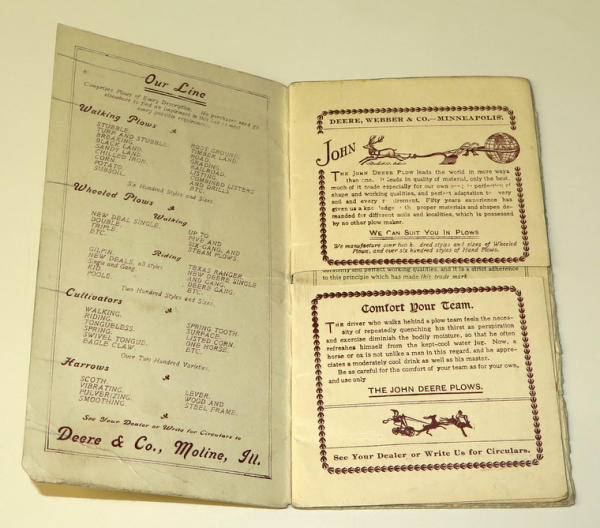 Our Line
Comprises Plows of Every Description. No purchaser need go
elsewhere to find an implement in this line to meet
every possible requirement.
Walking Plows
STUBBLE.
TURF AND STUBBLE.
BREAKING.
BLACK LAND.
SANDY LAND.
CHILLED IRON.
CORN.
POTATO.
SUBSOIL.
ROSE GROUND.
TIMBER LAND.
ROAD.
GRADING.
RAILROAD.
LISTERS.
COMBINED LISTERS
AND DRILLS.
ETC.
Six Hundred Styles and Sizes.
Wheeled Plows
Walking
NEW DEAL SINGLE.
DOUBLE.
TRIPLE.
ETC.
UP TO
FIVE AND
SIX-GANG, AND
STEAM PLOWS.
Riding
GILPIN.
NEW DEALS, all styles
Single and Gang.
KID.
POOLE.
TEXAS RANGER.
NEW DEERE SINGLE
AND GANG.
DEERE GANG.
ETC.
Two Hundred Styles and Sizes.
Cultivators
WALKING.
RIDING.
TONGUELESS.
SPRING.
SWIVEL TONGUE.
EAGLE CLAW.
SPRING TOOTH.
SURFACE.
LISTED CORN.
ONE HORSE.
ETC.
Over Two Hundred Varieties.
Harrows
SCOTH.
VIBRATING.
PULVERIZING.
SMOOTHING.
LEVER.
WOOD AND
STEEL FRAME.
See Your Dealer or Write for Circulars to
Deere & Co., Moline, Ill.
DEERE, WEBBER & CO.—MINNEAPOLIS.
JOHN
THE JOHN DEERE PLOW leads the world in more ways
than one. It leads in quality of material, only the best,
much of it made especially for our own in perfection of
shape and working qualities, and perfect adaptation to every
soil and every requirement. Fifty years experience has
given us a knowledge of the proper materials and shapes de-
manded for different soils and localities, which is possessed
by no other plow maker.
WE CAN SUIT YOU IN PLOWS
We manufacture over two hundred styles and sizes of Wheeled
Plows, and over six hundred styles of Hand Plows.
durability and perfect working qualities, and it is a strict adherence
to this principle which has made this trade mark
Comfort Your Team.
THE driver who walks behind a plow team feels the neces-
sity of repeatedly quenching his thirst as perspiration
and exercise diminish the bodily moisture, so that he often
refreshes himself from the kept-cool water jug. Now, a
horse or ox is not unlike a man in this regard, and he appre-
ciates a moderately cool drink as well as his master.
Be as careful for the comfort of your team as for your own,
and use only
THE JOHN DEERE PLOWS.
See Your Dealer or Write Us for Circulars.